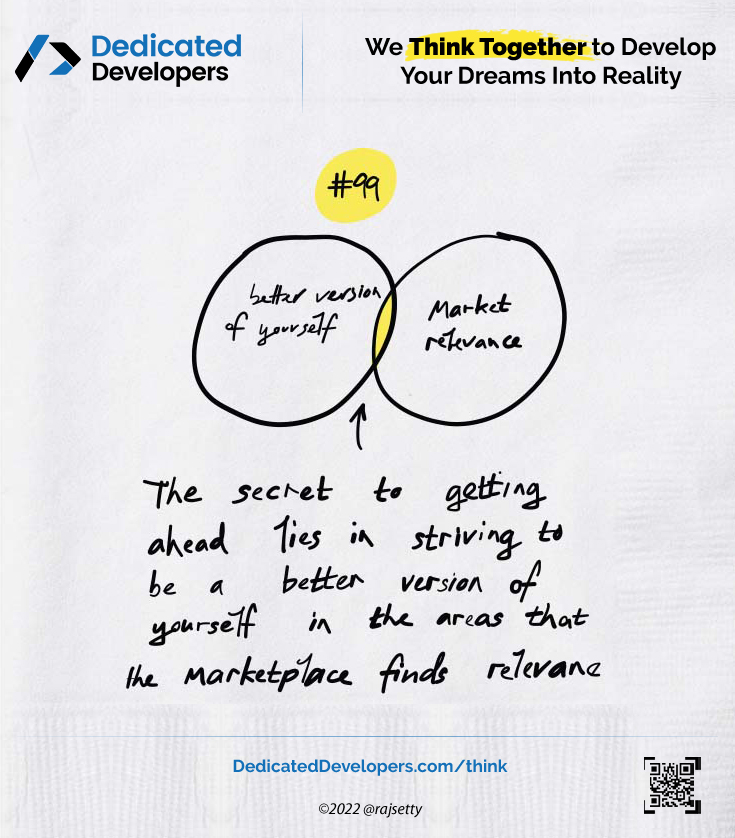 Dedicated
Developers
We Think Together to Develop
Your Dreams Into Reality
#99
better version
of yourself
Market
relevance
The secret to getting
ahead lies in striving to
be a better version of
yourself in the areas that
the Marketplace finds relevanc
DedicatedDevelopers.com/think
©2022 @rajsetty